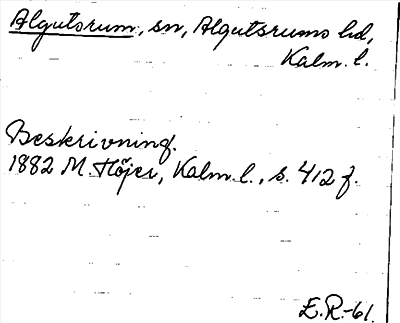 Algutsrum, sn, Algutsrums hd,
Kalm. l.
Beskrivning.
1882 M. Höjer, Kalm. l., s. 412 f.
E.R.-61.